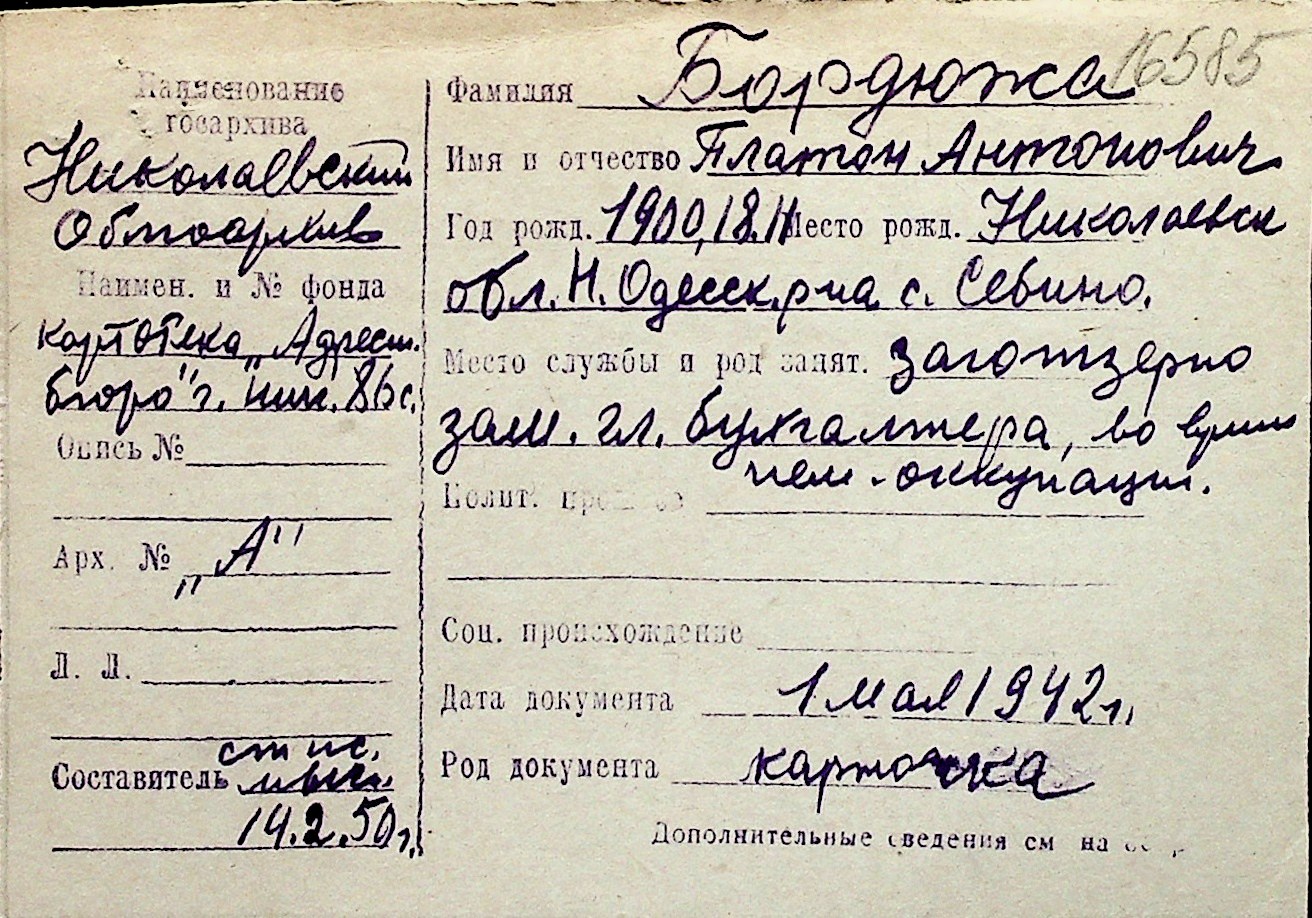 Наименование
госархива
Николаевский
Облгосархив
Наимен. и № фонда
картотека „Адресн.
бюро" г. Ник. 86 с.
Опись №
Арх. № „А"
Л. Л.
Составитель ст. ис.
14.2.50 г.
16585
Фамилия Бордюжа
Имя и отчество Платон Антонович
Год рожд. 1900, 18.11 Место рожд. Николаевск
обл. Н. Одесск. р-на с. Себино.
Место службы и род занят. Заготзерно
зам. гл. бухгалтера, во время
нем. оккупации.
Полит.
Соц. происхождение
Дата документа 1 мая 1942 г.
Род документа карточка
Дополнительные сведения см на